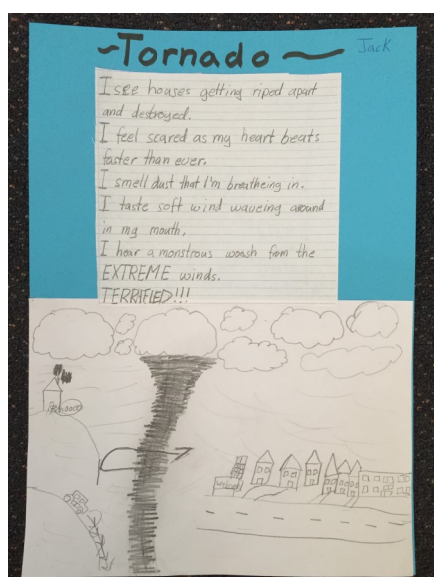 ~Tornado~
Jack
I see houses getting riped apart
and destroyed.
I feel scared as my heart beats
faster than ever.
I smell dust that I'm breatheing in.
I taste soft wind waveing around
in my mouth.
I hear a monstrous woosh from the
EXTREME winds.
TERRIFIED!!!